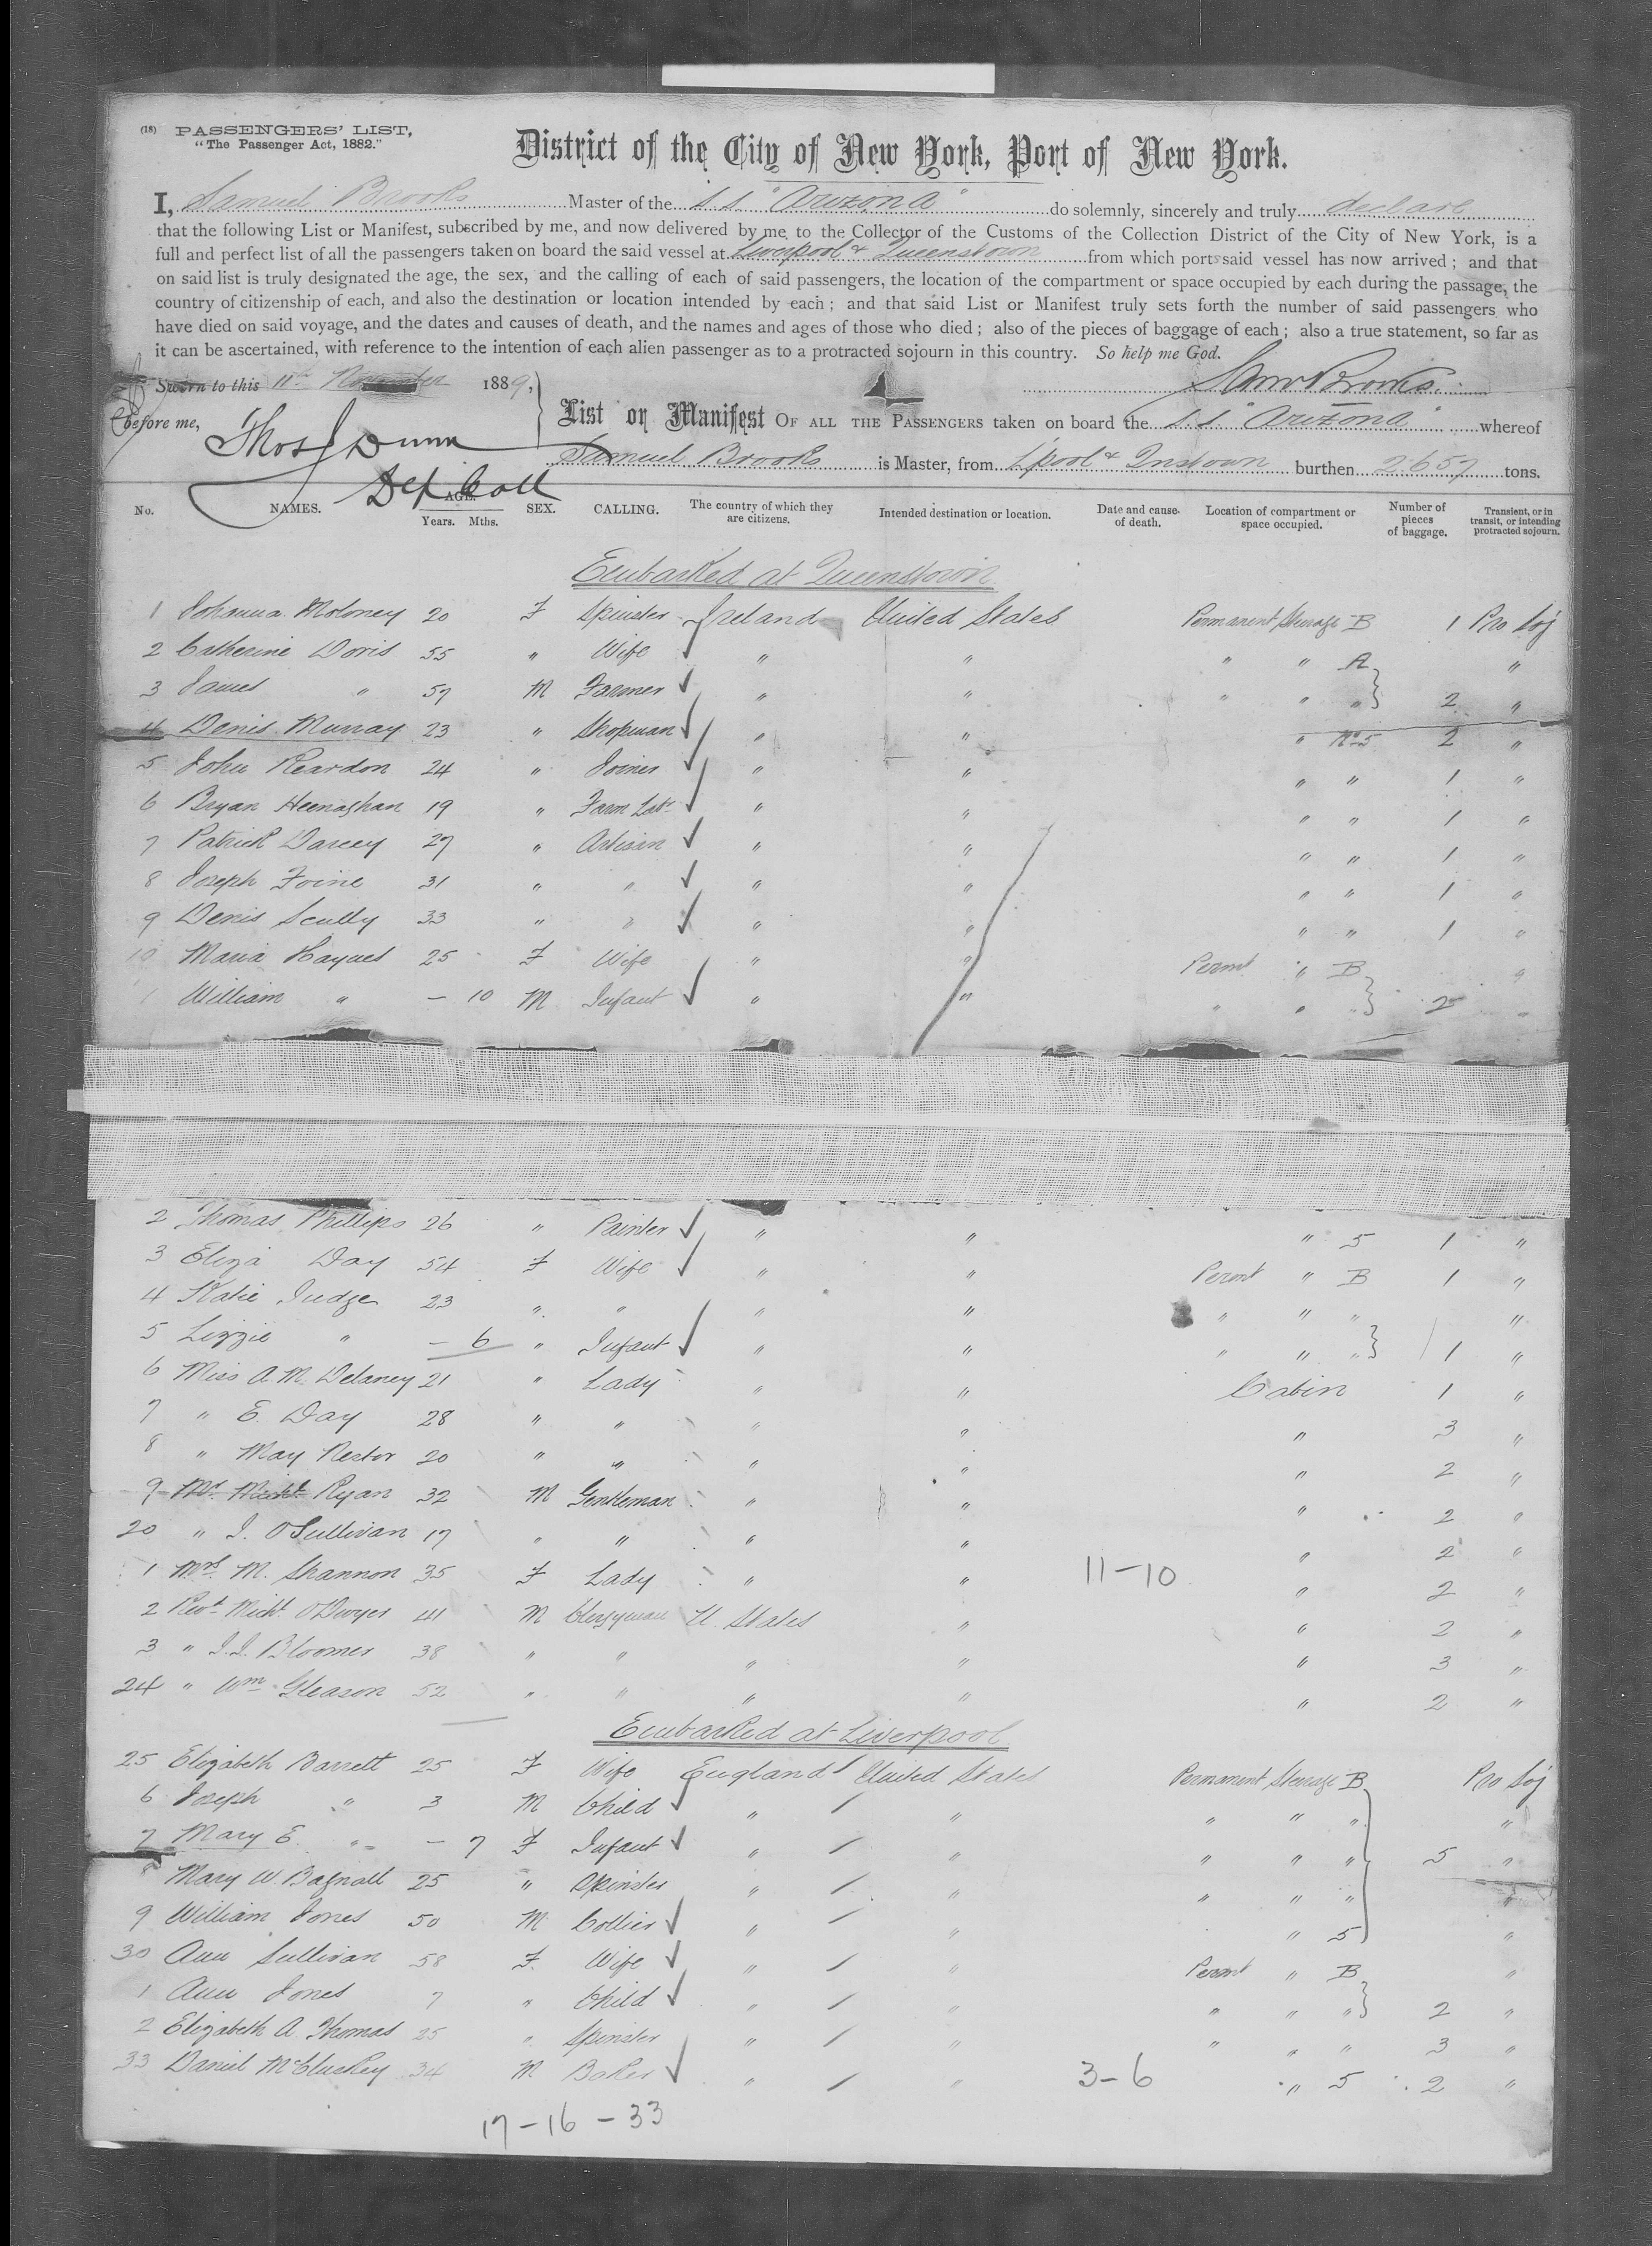 (18) PASSENGERS' LIST,
"The Passenger Act, 1882."
District of the City of New York, Port of New York.
I, Samuel Brooks Master of the S.S. "Arizona" do solemnly, sincerely and truly declare
that the following List or Manifest, subscribed by me, and now delivered by me to the Collector of the Customs of the Collection District of the City of New York, is a
full and perfect list of all the passengers taken on board the said vessel at Liverpool & Queenstown from which ports said vessel has now arrived; and that
on said list is truly designated the age, the sex, and the calling of each of said passengers, the location of the compartment or space occupied by each during the passage, the
country of citizenship of each, and also the destination or location intended by each; and that said List or Manifest truly sets forth the number of said passengers who
have died on said voyage, and the dates and causes of death, and the names and ages of those who died; also of the pieces of baggage of each; also a true statement, so far as
it can be ascertained, with reference to the intention of each alien passenger as to a protracted sojourn in this country. So help me God.
Sworn to this 11th November 1889, Saml Brooks
before me, List or Manifest OF ALL THE PASSENGERS taken on board the S.S "Arizona" whereof
Thos J Dunn
Samuel Brooks is Master, from L'pool & Qnstown burthen 2657 tons.
Dep Coll
No. NAMES. AGE. Years. Mths. SEX. CALLING. The country of which they are citizens. Intended destination or location. Date and cause of death. Location of compartment or space occupied. Number of pieces of baggage. Transient, or in transit, or intending protracted sojourn.
Embarked at Queenstown
1 Johanna Moloney 20 F Spinster Ireland United States Permanent Steerage B 1 Pro Soj
2 Catherine Doris 55 " Wife " " " " A "
3 James " 57 M Farmer " " " " " 2 "
4 Denis Murray 23 " Shopman " " " No 5 2 "
5 John Reardon 24 " Joiner " " " " 1 "
6 Bryan Heenaghan 19 " Farm Labr " " " " 1 "
7 Patrick Darcey 27 " Artisan " " " " 1 "
8 Joseph Foine 31 " " " " " " 1 "
9 Denis Scully 33 " " " " " " 1 "
10 Maria Haynes 25 F Wife " " Permt " B "
1 William " – 10 M Infant " " " " " 2 "
2 Thomas Phillips 26 " Painter " " " 5 1 "
3 Eliza Day 54 F Wife " " Permt " B 1 "
4 Katie Judge 23 " " " " " " " "
5 Lizzie " – 6 " Infant " " " " " 1 "
6 Miss A.M. Delaney 21 " Lady " " Cabin 1 "
7 " E. Day 28 " " " " " 3 "
8 " May Restor 20 " " " " " 2 "
9 Mr. Michl Ryan 32 M Gentleman " " " 2 "
20 " J. O'Sullivan 17 " " " " " 2 "
1 Mrs. M. Shannon 35 F Lady " " 11-10 " 2 "
2 Revd Michl O'Dwyer 41 M Clergyman U. States " " 2 "
3 " J.J. Bloomer 38 " " " " " 3 "
24 " Wm Gleason 52 " " " " " 2 "
Embarked at Liverpool
25 Elizabeth Barrett 25 F Wife England United States Permanent Steerage B Pro Soj
6 Joseph " 3 M Child " " " " " "
7 Mary E. " – 7 F Infant " " " " " 5 "
8 Mary W. Bagnall 25 " Spinster " " " " " "
9 William Jones 50 M Collier " " " 5 "
30 Ann Sullivan 58 F Wife " " Permt " B "
1 Ann Jones 7 " Child " " " " " 2 "
2 Elizabeth A. Thomas 25 " Spinster " " " " " 3 "
33 Daniel McCluskey 34 M Baker " " 3-6 " 5 2 "
17-16-33